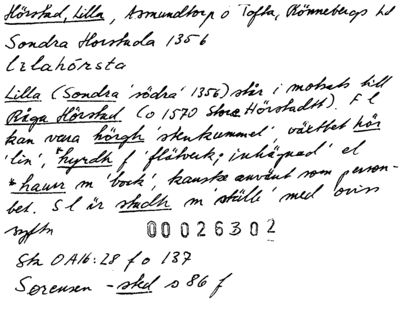 Hörstad, Lilla, Asmundtorp o Tofta, Rönnebergs hd
Sondra Horstada 1356
Lilahörsta
Lilla (Sondra 'södra' 1356) står i motsats till
Råga Hörstad (o 1570 Store Hörstadtt). F l
kan vara hörgh 'stenkummel', växtbet hör
'lin', *hyrdh f 'flätverk; inhägnad' el
*haurr m 'bock' kanske använt som person-
bet. S l är stadh m 'ställe' med oviss
syftn
00026302
Sk OA16:28 f o 137
Sørensen -sted s 86 f